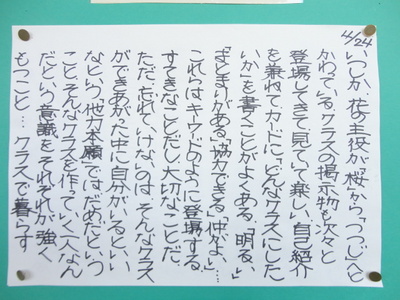 4/24
いつしか、花の主役が「桜」から「つつじ」へと
かわっている。クラスの掲示物も次々と
登場してきて、見ていて楽しい。自己紹介
を兼ねてカードに「どんなクラスにした
いか」を書くことがよくある。「明るい」
「まとまりがある」「協力できる」「仲がよい」…
これらはキーワードのように登場する。
すてきなことだし、大切なことだ。
ただ、忘れていけないのは、そんなクラス
ができあがった中に自分がいるといい
なという「他力本願」ではだめだという
こと。そんなクラスを作っていく一人なん
だという意識をそれぞれが強く
もつこと…クラスで暮らす